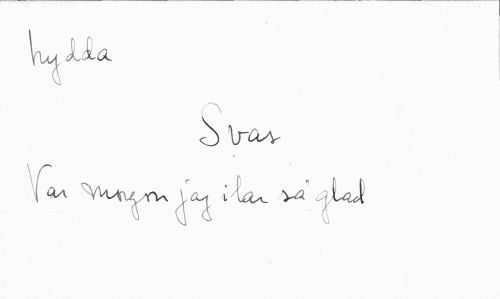 hydda
Svar
Var morgon jag ilar så glad